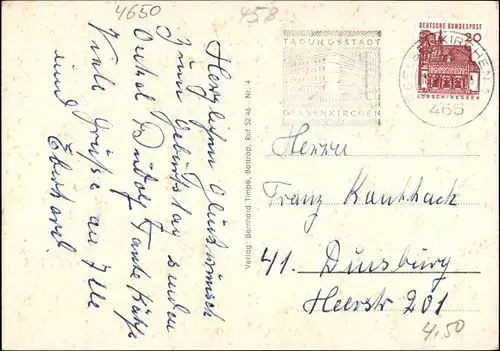 4650
458
Herzlichen Glückwunsch
zum Geburtstag senden
Onkel Rudolf Tante Käthe
Viele Grüße an Ille
und Eberhard.
Verlag Bernhard Timpe, Bottrop, Ruf 52 46 Nr. 4
TAGUNGSSTADT
GELSENKIRCHEN
DEUTSCHE BUNDESPOST
20
LORSCH/HESSEN
GELSENKIRCHEN 1
465
Herrn
Franz Kauthack
41. Duisburg
Heerstr 201
4,50